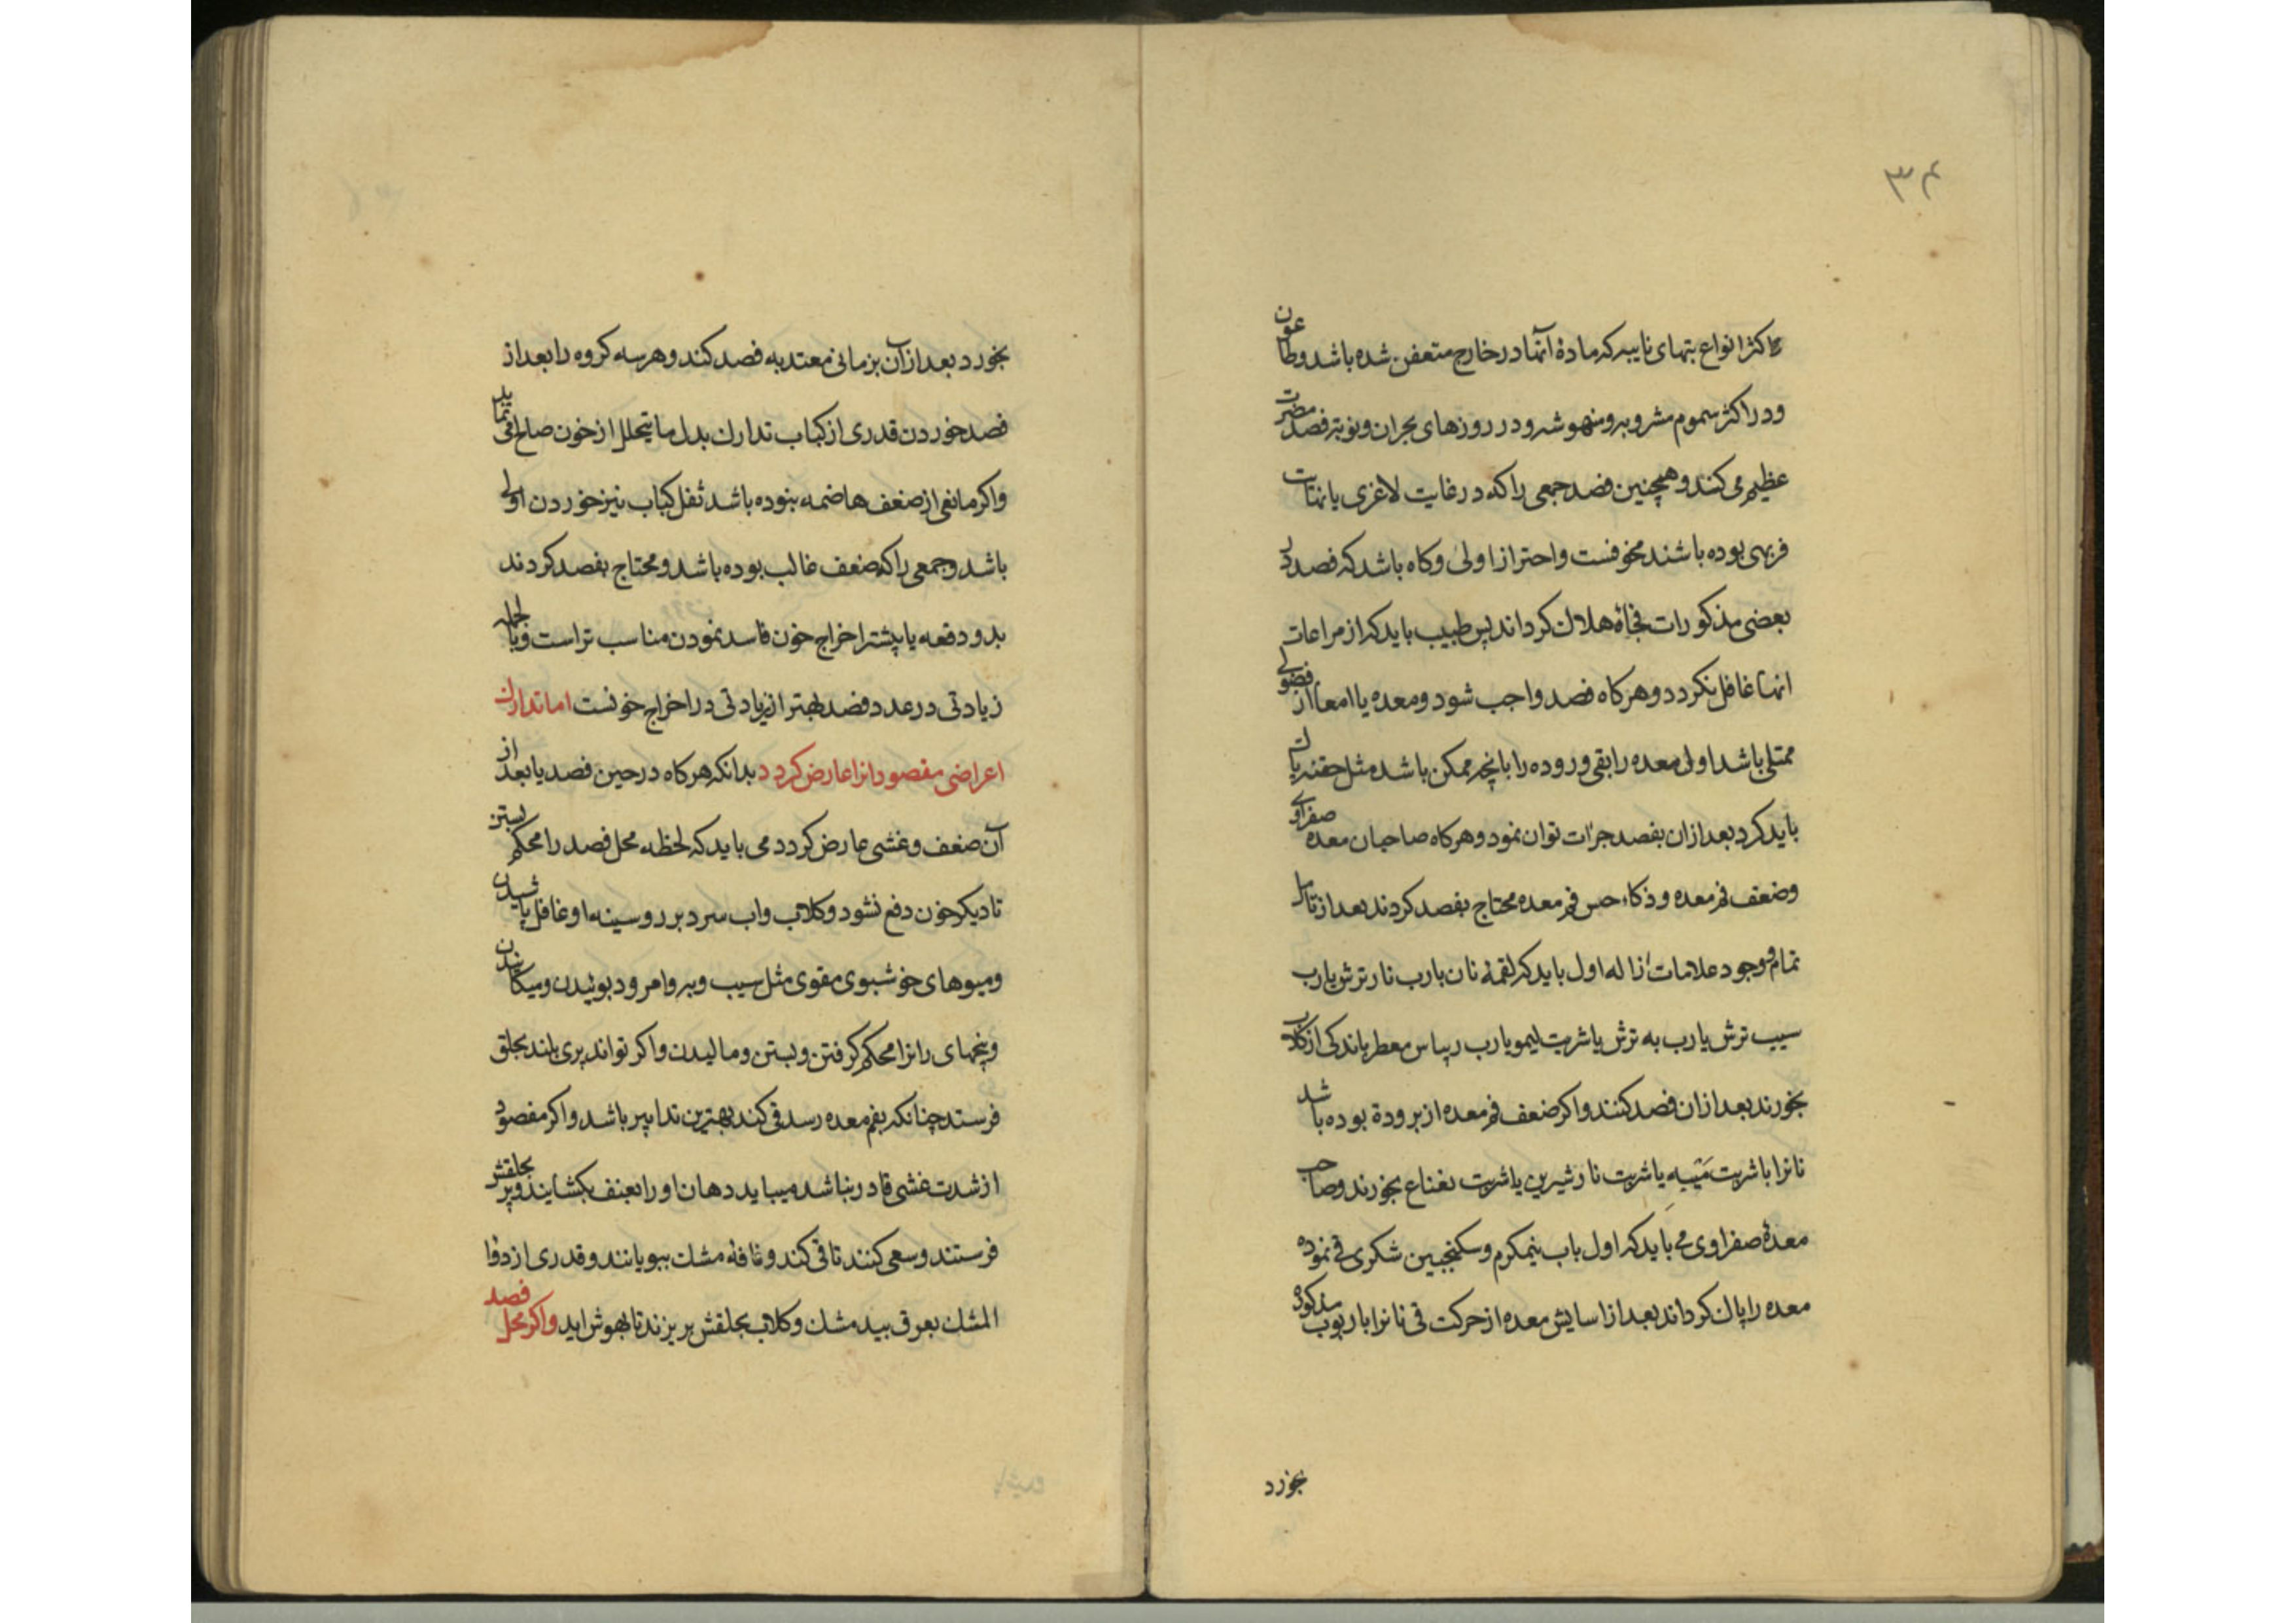 ۳۴
اکثر انواع تبهای نایبه که مادهٔ آنها در خارج متعفن شده باشد وطاعون
ودر اکثر سموم مشروبه ومنهوشه ودر روزهای بحران ونوبه فصد مضرت
عظیم می کند وهمچنین فصد جمعی را که در غایت لاغری یا نهایت
فربهی بوده باشند مخوفست واحتراز اولی وکاه باشد که فصد در
بعضی مذکورات فجأة هلاک کرداند پس طبیب باید که از مراعات
انها غافل نکردد وهرکاه فصد واجب شود ومعده یا امعا از فضولے
ممتلی باشد اول معده را بقی وروده را بانچه ممکن باشد مثل حقنه پاک
باید کرد بعد ازان بفصد جرات توان نمود وهرکاه صاحبان معده صفراوے
وضعف فم معده وذکاء حس فم معده محتاج بفصد کردند بعد از تامل
تمام ووجود علامات ازاله اول باید که لقمهٔ نان بارب نار ترش یارب
سیب ترش یارب به ترش یا شربت لیمو یارب ریباس معطر باندکی از کلاب
بخورند بعد ازان فصد کنند واکر ضعف فم معده از برودة بوده باشد
نانرا باشربت مَیبه یا شربت نار شیرین یا شربت نعناع بخورند وصاحب
معدهٔ صفراوی می باید که اول باب نیمکرم وسکنجبین شکری قی نموده
معده را پاک کرداند بعد از اسایش معده از حرکت قی نانرا باربوب مذکوره
بخورد
بخورد بعد ازان بزمانی معتدبه فصد کند وهر سه کروه را بعد از
فصد خوردن قدری از کباب تدارک بدل ما یتحلل از خون صالح می نماید
واکر مانعی از ضعف هاضمه نبوده باشد ثفل کباب نیز خوردن اولے
باشد وجمعی را که ضعف غالب بوده باشد ومحتاج بفصد کردند
بدو دفعه یا پیشتر اخراج خون فاسد نمودن مناسب تر است وبالجمله
زیادتی در عدد فصد بهتر از زیادتی در اخراج خونست اما تدارک
اعراضی مفصود انرا عارض کردد بدانکه هرکاه در حین فصد یا بعد از
آن ضعف وغشی عارض کردد می باید که لحظه محل فصد را محکم بستن
تا دیکر خون دفع نشود وکلاب واب سرد بر رو وسینه او غافل پاشیدن
ومیوهای خوشبوی مقوی مثل سیب وبه وامرود بوئیدن ومیکانیدن
وپنجهای رانرا محکم کرفتن وبستن ومالیدن واکر تواند پری بلند بحلق
فرستد چنانکه بفم معده رسد قی کند بهترین تدابیر باشد واکر مفصود
از شدت غشی قادر نباشد میباید دهان او را بعنف بکشایند وپر بحلقش
فرستند وسعی کنند تا قی کند ونافهٔ مشک ببویانند وقدری از دوا
المشک بعرق بید مشک وکلاب بحلقش بریزند تا بهوش اید واکر محل فصد